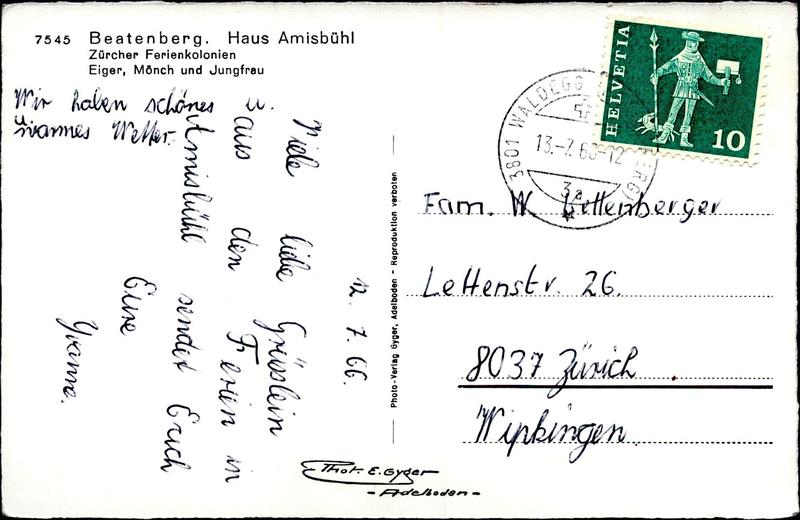 7545 Beatenberg. Haus Amisbühl
Zürcher Ferienkolonien
Eiger, Mönch und Jungfrau
Wir haben schönes u.
warmes Wetter.
12. 7. 66.
Viele liebe Grüsslein
aus den Ferien in
Amisbühl sendet Euch
Eure
Yvonne.
Photo-Verlag Gyger, Adelboden - Reproduktion verboten
Phot. E. Gyger
- Adelboden -
HELVETIA
10
3801 WALDEGG
13.-7.66-12
3a
Fam. W. Bettenberger
Lettenstr. 26.
8037 Zürich
Wipkingen.